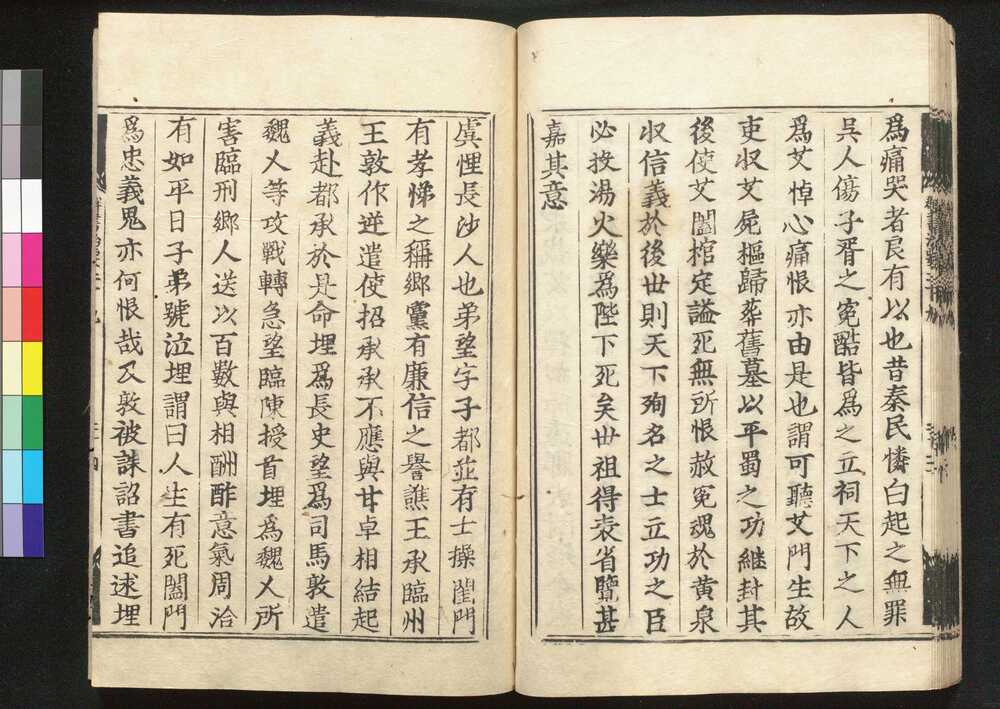 爲痛哭者良有以也昔秦民憐白起之無罪
吳人傷子胥之冤酷皆爲之立祠天下之人
爲艾悼心痛恨亦由是也謂可聽艾門生故
吏収艾屍柩歸葬舊墓以平蜀之功継封其
後使艾闔棺定謚死無所恨赦冤魂於黃泉
収信義於後世則天下殉名之士立功之臣
必投湯火樂爲陛下死矣世祖得表省覽甚
嘉其意
虞悝長沙人也弟望字子都並有士操閨門
有孝悌之稱鄉黨有廉信之譽譙王承臨州
王敦作逆遣使招承承不應與甘卓相結起
義赴都承於是命埋爲長史望爲司馬敦遣
魏乂等攻戰轉急望臨陳授首埋爲魏乂所
害臨刑鄉人送以百數與相酬酢意氣周洽
有如平日子弟號泣埋謂曰人生有死闔門
爲忠義鬼亦何恨哉及敦被誅詔書追述埋